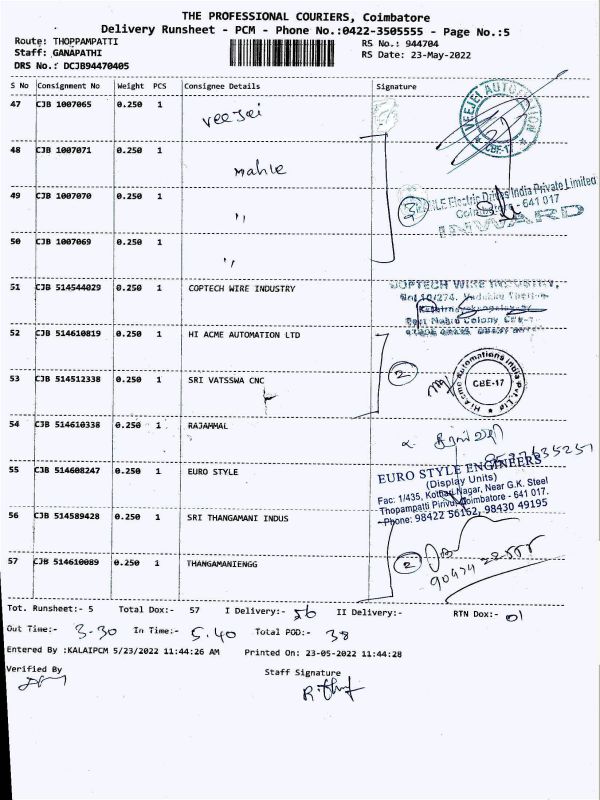 THE PROFESSIONAL COURIERS, Coimbatore
Delivery Runsheet - PCM - Phone No.:0422-3505555 - Page No.:5
Route: THOPPAMPATTI RS No.: 944704
Staff: GANAPATHI RS Date: 23-May-2022
DRS No.: DCJB94470405
S No Consignment No Weight PCS Consignee Details Signature
47 CJB 1007065 0.250 1 Veejai
VEEJEI AUTOMATION
CBE-17
48 CJB 1007071 0.250 1 Mahle
49 CJB 1007070 0.250 1 "
3
MAHLE Electric Drives India Private Limited
Coimbatore - 641 017
INWARD
50 CJB 1007069 0.250 1 "
51 CJB 514544029 0.250 1 COPTECH WIRE INDUSTRY
COPTECH WIRE INDUSTRY,
52 CJB 514610819 0.250 1 HI ACME AUTOMATION LTD
2
Hi Acme Automations India Pvt. Ltd
CBE-17
53 CJB 514512338 0.250 1 SRI VATSSWA CNC
54 CJB 514610338 0.250 1 RAJAMMAL
55 CJB 514608247 0.250 1 EURO STYLE
EURO STYLE ENGINEERS
(Display Units)
Fac: 1/435, Kothari Nagar, Near G.K. Steel
Thopampatti Pirivu, Coimbatore - 641 017.
Phone: 98422 56162, 98430 49195
56 CJB 514589428 0.250 1 SRI THANGAMANI INDUS
2
57 CJB 514610089 0.250 1 THANGAMANIENGG
Tot. Runsheet:- 5 Total Dox:- 57 I Delivery:- 56 II Delivery:- RTN Dox:- 01
Out Time:- 3-30 In Time:- 5.40 Total POD:- 38
Entered By :KALAIPCM 5/23/2022 11:44:26 AM Printed On: 23-05-2022 11:44:28
Verified By Staff Signature